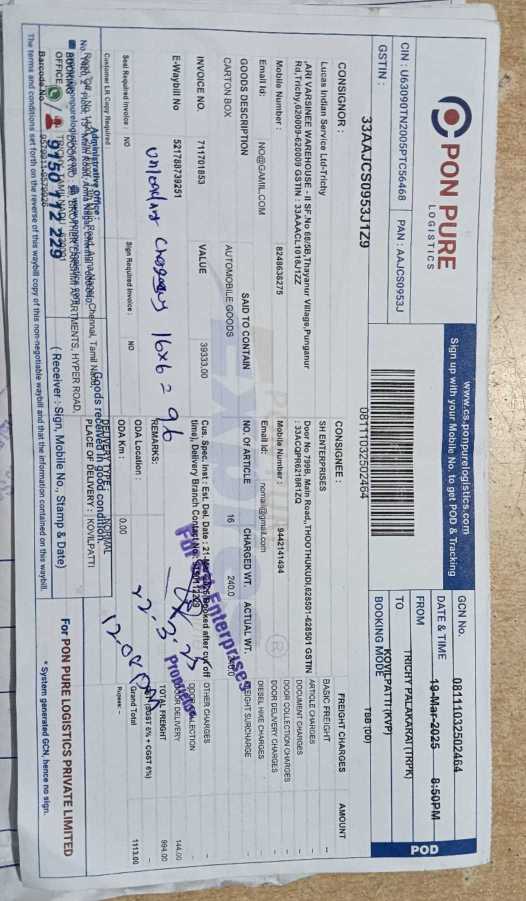 PON PURE
LOGISTICS
www.cs.ponpurelogistics.com
Sign up with your Mobile No. to get POD & Tracking
CIN : U63090TN2005PTC56468 PAN : AAJCS0953J
GSTIN : 33AAJCS0953J1Z9
08111032502464
GCN No. 08111032502464
DATE & TIME 19-Mar-2025 8:50PM
FROM TRICHY PALAKARAI (TRPK)
TO KOVILPATTI (KVP)
BOOKING MODE TBB (DD)
POD
CONSIGNOR :
Lucas Indian Service Ltd-Trichy
,ARI VARSINEE WAREHOUSE - II SF.No 68/5B,Thayanur Village,Punganur
Rd,Trichy,620009-620009 GSTIN : 33AAACL1018J1ZZ
Mobile Number : 8248638275
Email Id: NO@GAMIL.COM
CONSIGNEE :
SH ENTERPRISES
Door No 799B, Main Road,,THOOTHUKUDI,628501-628501 GSTIN
:33ACQPR6218R1ZQ
Mobile Number : 9442141494
Email Id: nomail@gmail.com
FREIGHT CHARGES AMOUNT
BASIC FREIGHT --
ARTICLE CHARGES --
DOCUMENT CHARGES --
DOOR COLLECTION CHARGES --
DOOR DELIVERY CHARGES --
DIESEL HIKE CHARGES --
FREIGHT SURCHARGE --
OTHER CHARGES --
DOOR DELIVERY 144.00
TOTAL FREIGHT 994.00
(SGST 6% + CGST 6%) --
Grand Total 1113.00
Rupees: -
GOODS DESCRIPTION SAID TO CONTAIN NO. OF ARTICLE CHARGED WT. ACTUAL WT.
CARTON BOX AUTOMOBILE GOODS 16 240.0
INVOICE NO. VALUE
711701853 39333.00
E-Waybill No 521788739251
Cus. Spec. Inst : Est. Del. Date : 21- Booked after cut off
time), Delivery Branch Contact No.
REMARKS:
unloading charges 16x6 = 96
For SH Enterprises
Proprietor
22.3.25
12.08
Seal Required Invoice : NO Sign Required Invoice : NO
ODA Location :
ODA Km : 0.00
Customer LR Copy Required
DELIVERY TYPE : NORMAL
PLACE OF DELIVERY : KOVILPATTI
Goods received in good condition.
Administrative Office :
BOOKING OFFICE
9150 112 229
( Receiver : Sign, Mobile No., Stamp & Date)
For PON PURE LOGISTICS PRIVATE LIMITED
* System generated GCN, hence no sign.
The terms and conditions set forth on the reverse of this waybill copy of this non-negotiable waybill and that the information contained on this waybill.